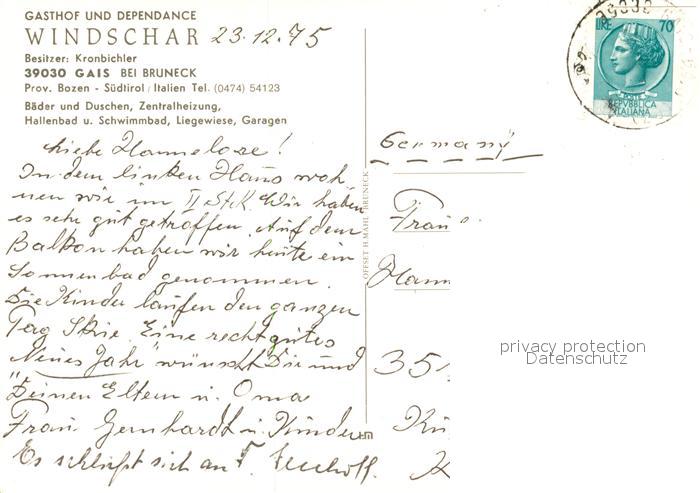 GASTHOF UND DEPENDANCE
WINDSCHAR 23.12.75
Besitzer: Kronbichler
39030 GAIS BEI BRUNECK
Prov. Bozen - Südtirol / Italien Tel. (0474) 54123
Bäder und Duschen, Zentralheizung,
Hallenbad u. Schwimmbad, Liegewiese, Garagen
Liebe Hannelore!
In dem linken Haus woh
nen wir im II Stck. Wir haben
es sehr gut getroffen. Auf dem
Balkon haben wir heute ein
Sonnenbad genommen.
Die Kinder laufen den ganzen
Tag Skie. Eine recht gutes
"Neues Jahr" wünscht Dir und
Deinen Eltern u. Oma
Frau Gernhardt u. Kinder
Es schließt sich an F.
OFFSET H. MAHL BRUNECK
39030
LIRE 70
POSTE
REPVBBLICA
ITALIANA
Germany
Frau
Hann
35
Kü
K
privacy protection
Datenschutz